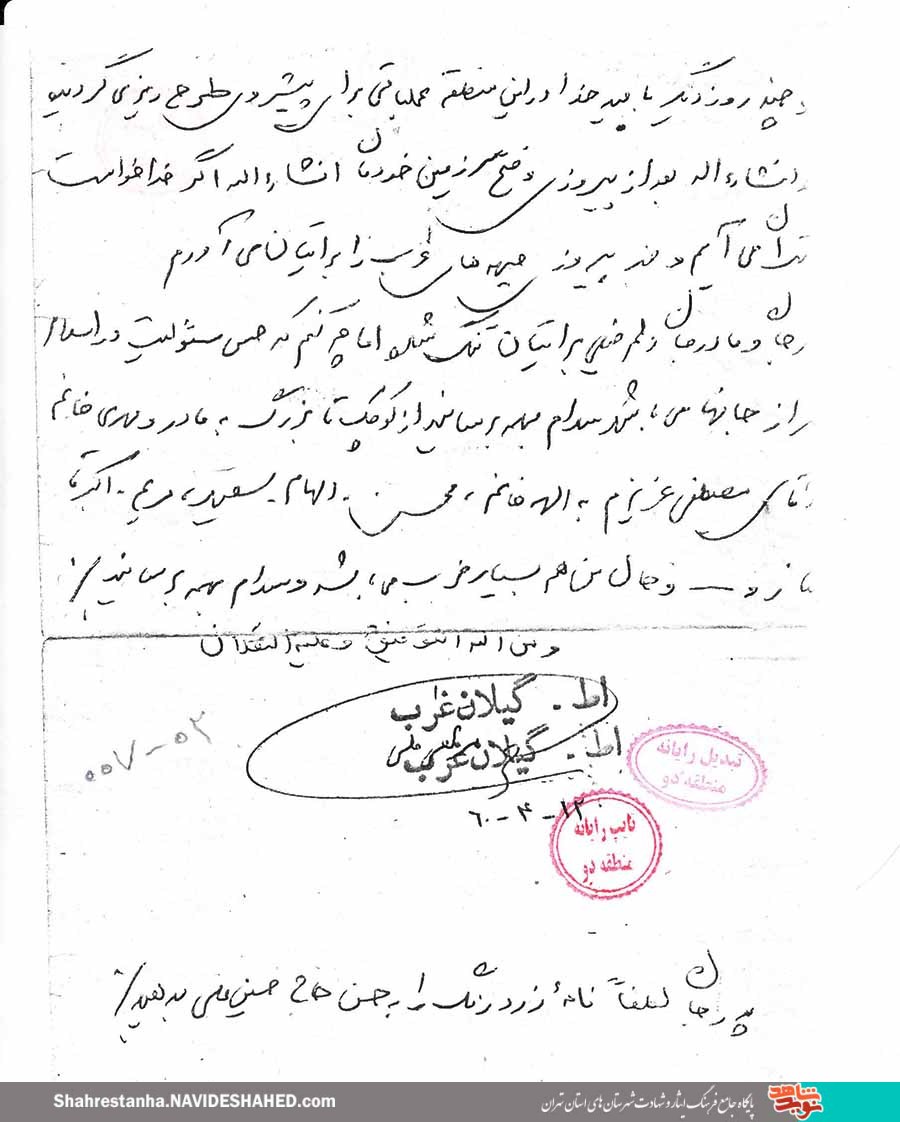 و چند روز دیگر با امید خدا در این منطقه عملیاتی برای پیشروی طرح ریزی گردیده
انشاءاله بعد از پیروزی و فتح سرزمین خودمان انشاءاله اگر خدا خواست
می آیم و خبر پیروزی جبهه های غرب را برایتان می آورم
جان و مادرجان دلم خیلی برایتان تنگ شده اما چه کنم که حس مسئولیت در اسلام
از جانها می باشد سلام مرا به همه برسانید از کوچک تا بزرگ به مادر و مهری خانم
آقای مصطفی عزیزم به الهه خانم ، محسن - الهام - سعید ، مریم - اکبر
و حال من هم بسیار خوب می باشد و سلام به همه برسانید
و من اله التوفیق و علیه التکلان
اط - گیلان غرب
اط - گیلان غرب
۰۰۷-۵۲
تبدیل رایانه
منطقه دو
۶۰-۴-۱۲
تایپ رایانه
منطقه دو
پدرجان لطفاً نامهٔ زرد رنگ را به حسن حاج حسینعلی بدهید
Shahrestanha.NAVIDESHAHED.com
پایگاه جامع فرهنگ ایثار و شهادت شهرستان های استان تهران
نوید شاهد